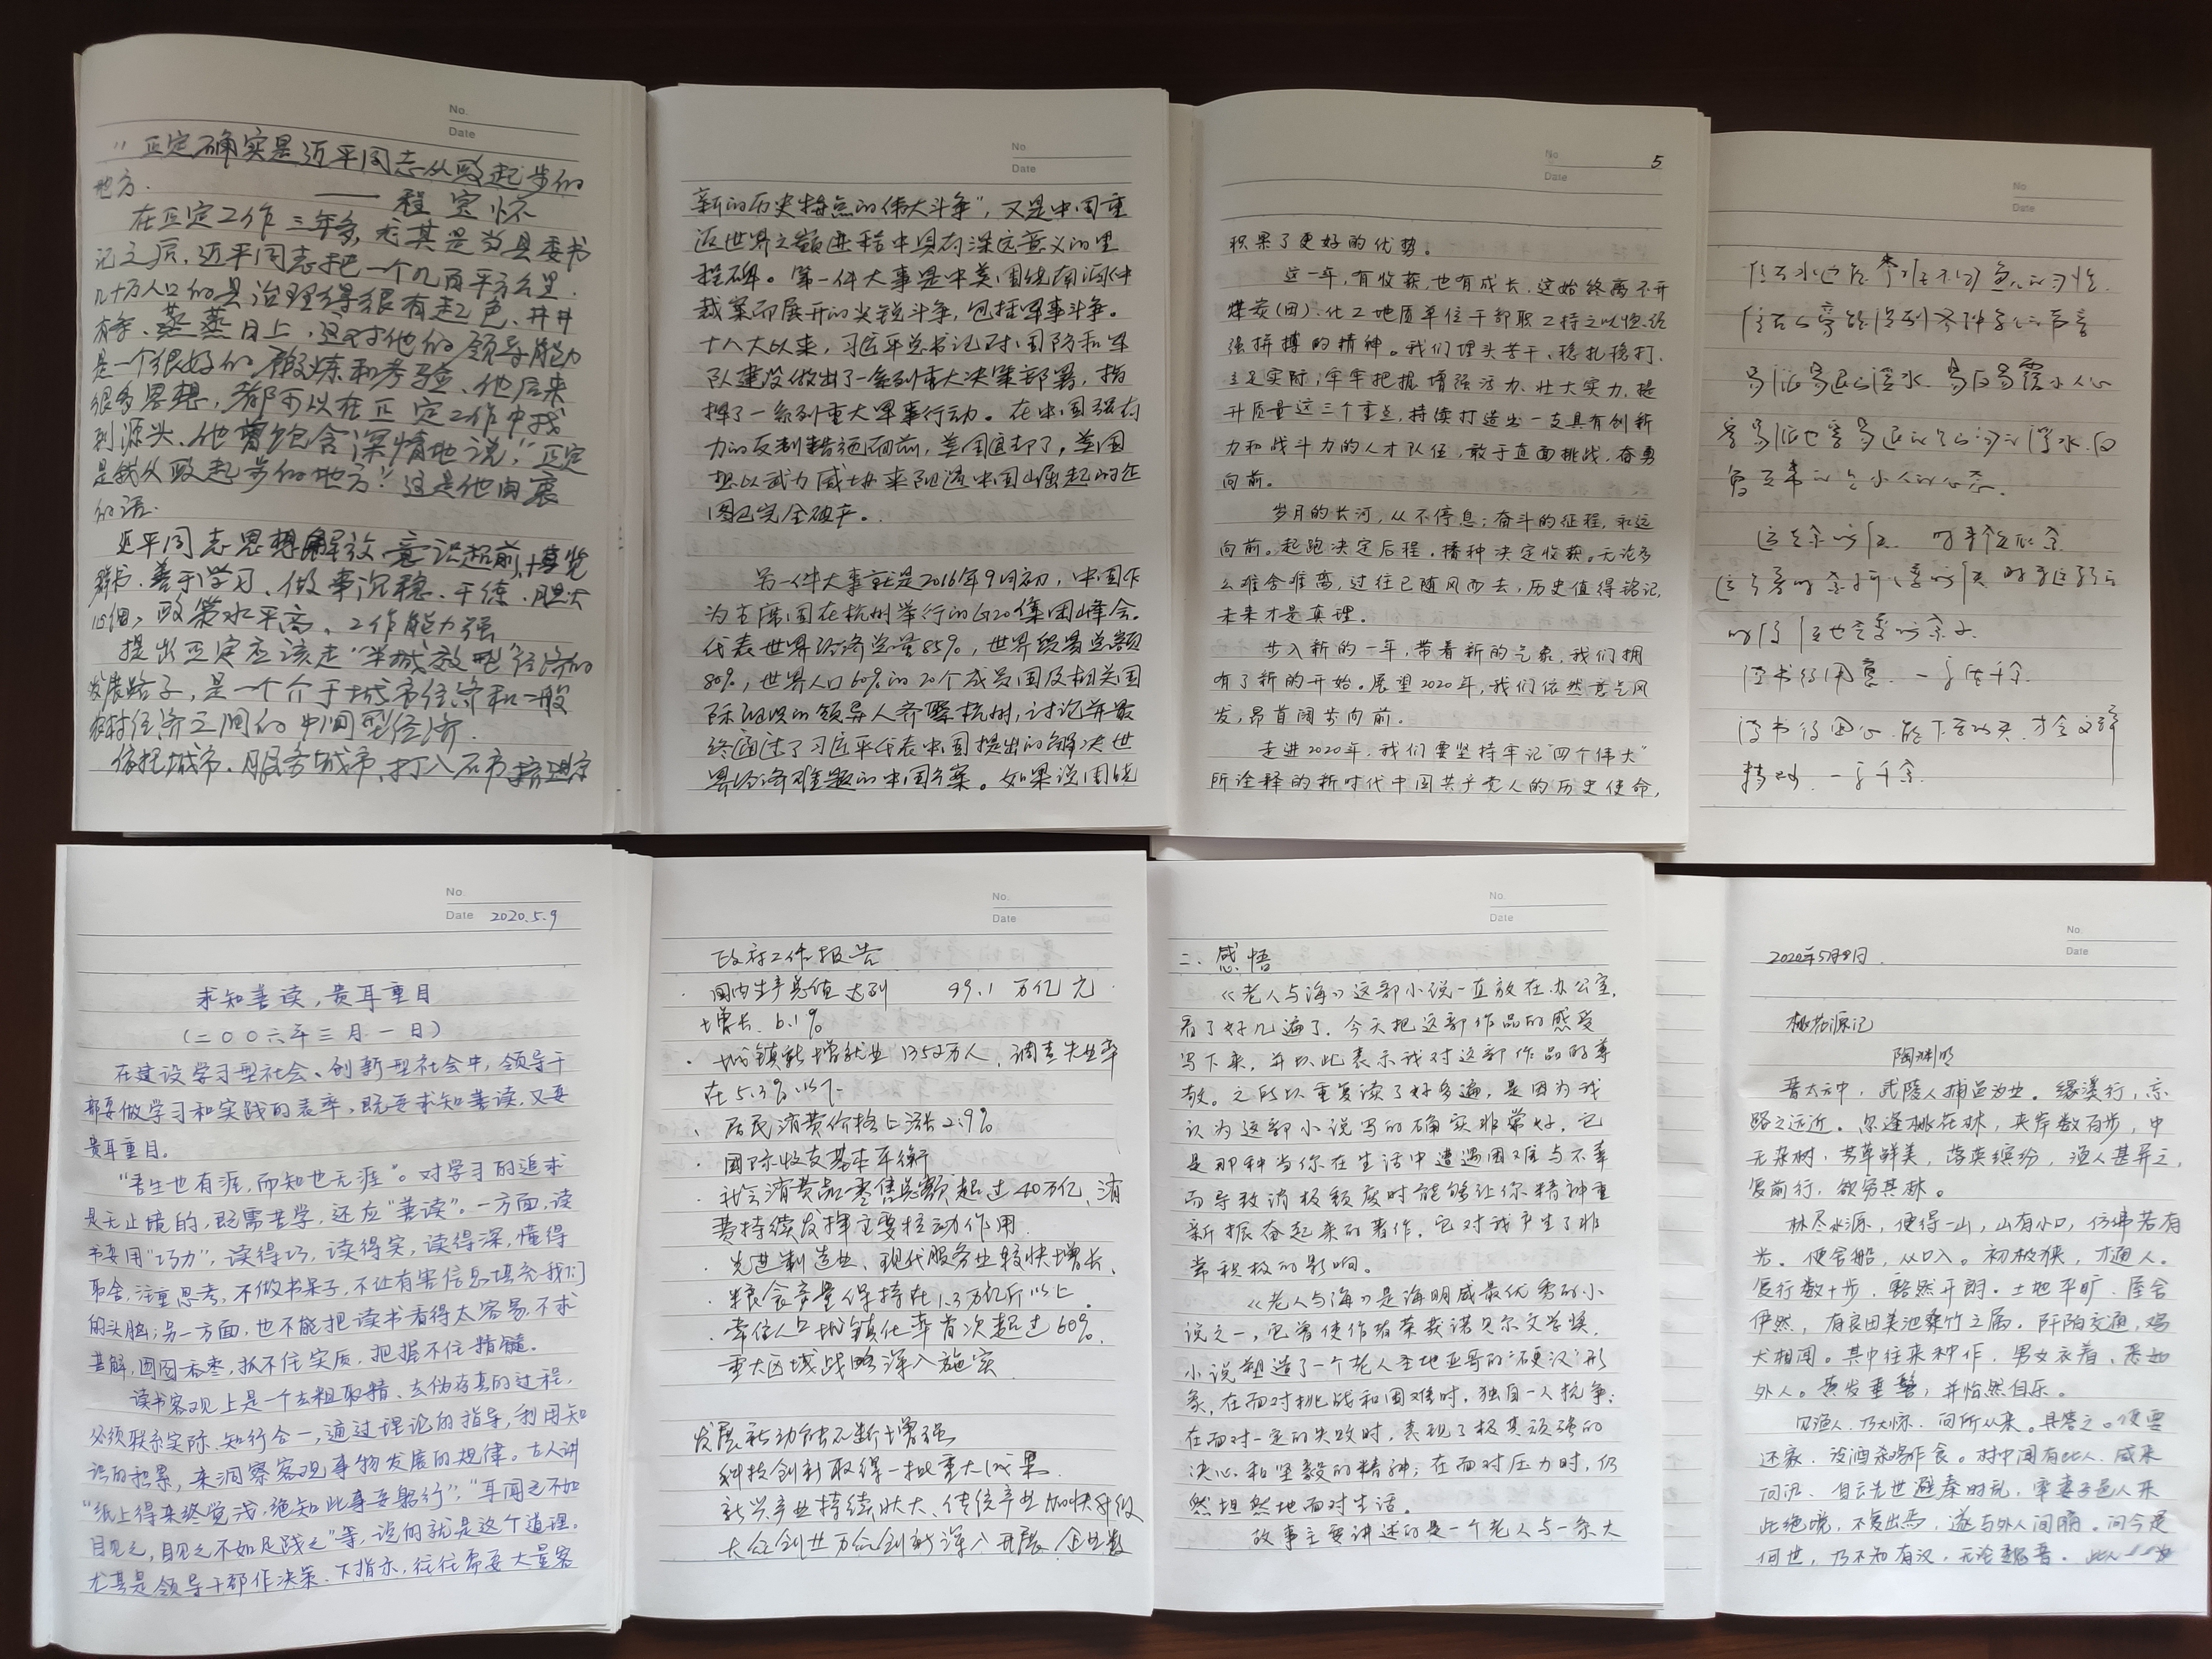 No.
Date
"正定确实是近平同志从政起步的
地方.
—— 程宝怀
在正定工作三年多,尤其是当县委书
记之后,近平同志把一个几百平方公里.
几十万人口的县治理得很有起色、井井
有条、蒸蒸日上,这对他的领导能力
是一个很好的锻炼和考验、他后来
很多思想,都可以在正定工作中找
到源头、他曾饱含深情地说:"正定
是我从政起步的地方!"这是他由衷
的话.
近平同志思想解放 意识超前,博览
群书、善于学习、做事沉稳、干练、胆大
心细,政策水平高、工作能力强
提出正定应该走"半城郊型"经济的
发展路子,是一个介于城市经济和一般
农村经济之间的中间型经济.
依托城市、服务城市、打入石市、挤进京
No.
Date
新的历史特点的伟大斗争",又是中国重
返世界之巅进程中具有深远意义的里
程碑。第一件大事是中美围绕南海仲
裁案而展开的尖锐斗争,包括军事斗争。
十八大以来,习近平总书记对国防和军
队建设做出了一系列重大决策部署,指
挥了一系列重大军事行动。在中国强有
力的反制措施面前,美国退却了,美国
想以武力威胁来阻遏中国崛起的企
图已完全破产。
另一件大事就是2016年9月初,中国作
为主席国在杭州举行的G20集团峰会。
代表世界经济总量85%,世界贸易总额
80%,世界人口60%的20个成员国及相关国
际组织的领导人齐聚杭州,讨论并最
终通过了习近平代表中国提出的解决世
界经济难题的中国方案。如果说围绕
No.
Date
5
积累了更好的优势。
这一年,有收获,也有成长,这始终离不开
煤炭(田)、化工地质单位干部职工持之以恒、顽
强拼搏的精神。我们埋头苦干、稳扎稳打、
立足实际,牢牢把握增强活力、壮大实力、提
升质量这三个重点,持续打造出一支具有创新
力和战斗力的人才队伍,敢于直面挑战,奋勇
向前。
岁月的长河,从不停息;奋斗的征程,永远
向前。起跑决定后程,播种决定收获。无论多
么难舍难离,过往已随风而去,历史值得铭记,
未来才是真理。
步入新的一年,带着新的气象,我们拥
有了新的开始。展望2020年,我们依然意气风
发,昂首阔步向前。
走进2020年,我们要坚持牢记"四个伟大"
所诠释的新时代中国共产党人的历史使命,
No.
Date
易涨易退山溪水、易反易覆小人心
读书须用意、一字值千金.
No.
Date 2020.5.9
求知善读,贵耳重目
(二〇〇六年三月一日)
在建设学习型社会、创新型社会中,领导干
部要做学习和实践的表率,既要求知善读,又要
贵耳重目。
"吾生也有涯,而知也无涯"。对学习的追求
是无止境的,既需苦学,还应"善读"。一方面,读
书要用"巧力",读得巧,读得实,读得深,懂得
取舍,注重思考,不做书呆子,不让有害信息填充我们
的头脑;另一方面,也不能把读书看得太容易,不求
甚解,囫囵吞枣,抓不住实质,把握不住精髓。
读书客观上是一个去粗取精、去伪存真的过程,
必须联系实际、知行合一,通过理论的指导,利用知
识的积累,来洞察客观事物发展的规律。古人讲
"纸上得来终觉浅,绝知此事要躬行","耳闻之不如
目见之,目见之不如足践之"等,说的就是这个道理。
尤其是领导干部作决策、下指示,往往需要大量客
No.
Date
政府工作报告
· 国内生产总值达到 99.1 万亿元.
增长 6.1%
· 城镇新增就业 1352万人、调查失业率
在5.3%以下
、居民消费价格上涨2.9%
· 国际收支基本平衡
· 社会消费品零售总额超过40万亿、消
费持续发挥主要拉动作用.
· 先进制造业、现代服务业较快增长、
· 粮食产量保持在1.3万亿斤以上.
· 常住人口城镇化率首次超过60%.
重大区域战略深入施实
发展新动能不断增强
科技创新取得一批重大成果.
新兴产业持续壮大、传统产业加快升级
大众创业万众创新深入开展、企业数
No.
Date
二、感悟
《老人与海》这部小说一直放在办公室,
看了好几遍了,今天把这部作品的感受
写下来,并以此表示我对这部作品的尊
敬。之所以重复读了好多遍,是因为我
认为这部小说写的确实非常好,它
是那种当你在生活中遭遇困难与不幸
而导致消极颓废时能够让你精神重
新振奋起来的著作,它对我产生了非
常积极的影响。
《老人与海》是海明威最优秀的小
说之一,它曾使作者荣获诺贝尔文学奖,
小说塑造了一个老人圣地亚哥的"硬汉"形
象,在面对挑战和困难时,独自一人抗争;
在面对一定的失败时,表现了极其顽强的
决心和坚毅的精神;在面对压力时,仍
然坦然地面对生活。
故事主要讲述的是一个老人与一条大
No.
Date
2020年5月9日.
桃花源记
陶渊明
晋太元中,武陵人捕鱼为业。缘溪行,忘
路之远近。忽逢桃花林,夹岸数百步,中
无杂树,芳草鲜美,落英缤纷,渔人甚异之,
复前行,欲穷其林。
林尽水源,便得一山,山有小口,仿佛若有
光。便舍船,从口入。初极狭,才通人。
复行数十步,豁然开朗。土地平旷,屋舍
俨然,有良田美池桑竹之属。阡陌交通,鸡
犬相闻。其中往来种作,男女衣着,悉如
外人。黄发垂髫,并怡然自乐。
见渔人,乃大惊,问所从来。具答之。便要
还家,设酒杀鸡作食。村中闻有此人,咸来
问讯。自云先世避秦时乱,率妻子邑人来
此绝境,不复出焉,遂与外人间隔。问今是
何世,乃不知有汉,无论魏晋。此人